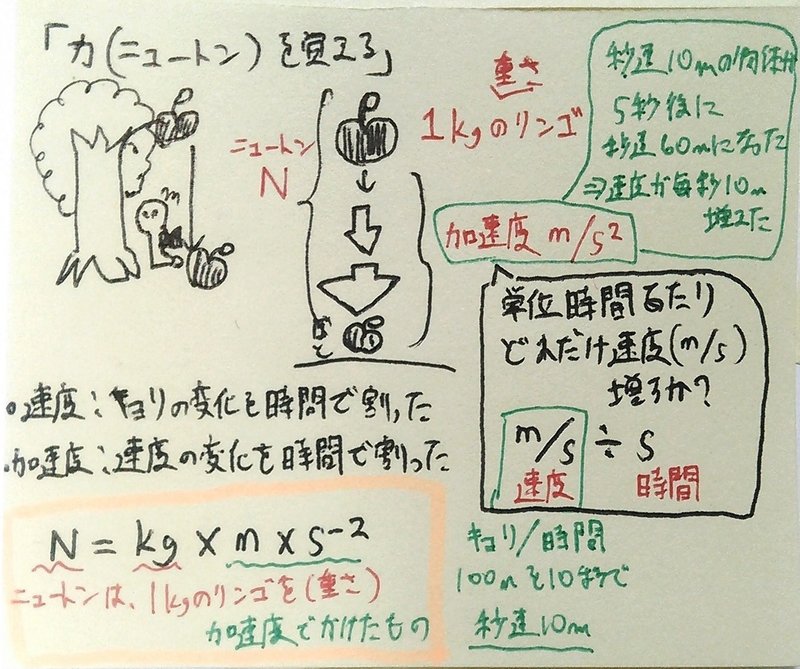 「力(ニュートン)を覚える」
ニュートン
N
重さ
1kgのリンゴ
秒速10mの物体が
5秒後に
秒速60mになった
⇒速度が毎秒10m
増えた
加速度 m/s2
単位時間あたり
どれだけ速度(m/s)
増えるか?
m/s ÷ s
速度 時間
ぼと
•速度:キョリの変化を時間で割った
•加速度:速度の変化を時間で割った
N = kg × m × s-2
ニュートンは、1kgのリンゴを(重さ)
加速度でかけたもの
キョリ/時間
100mを10秒で
秒速10m